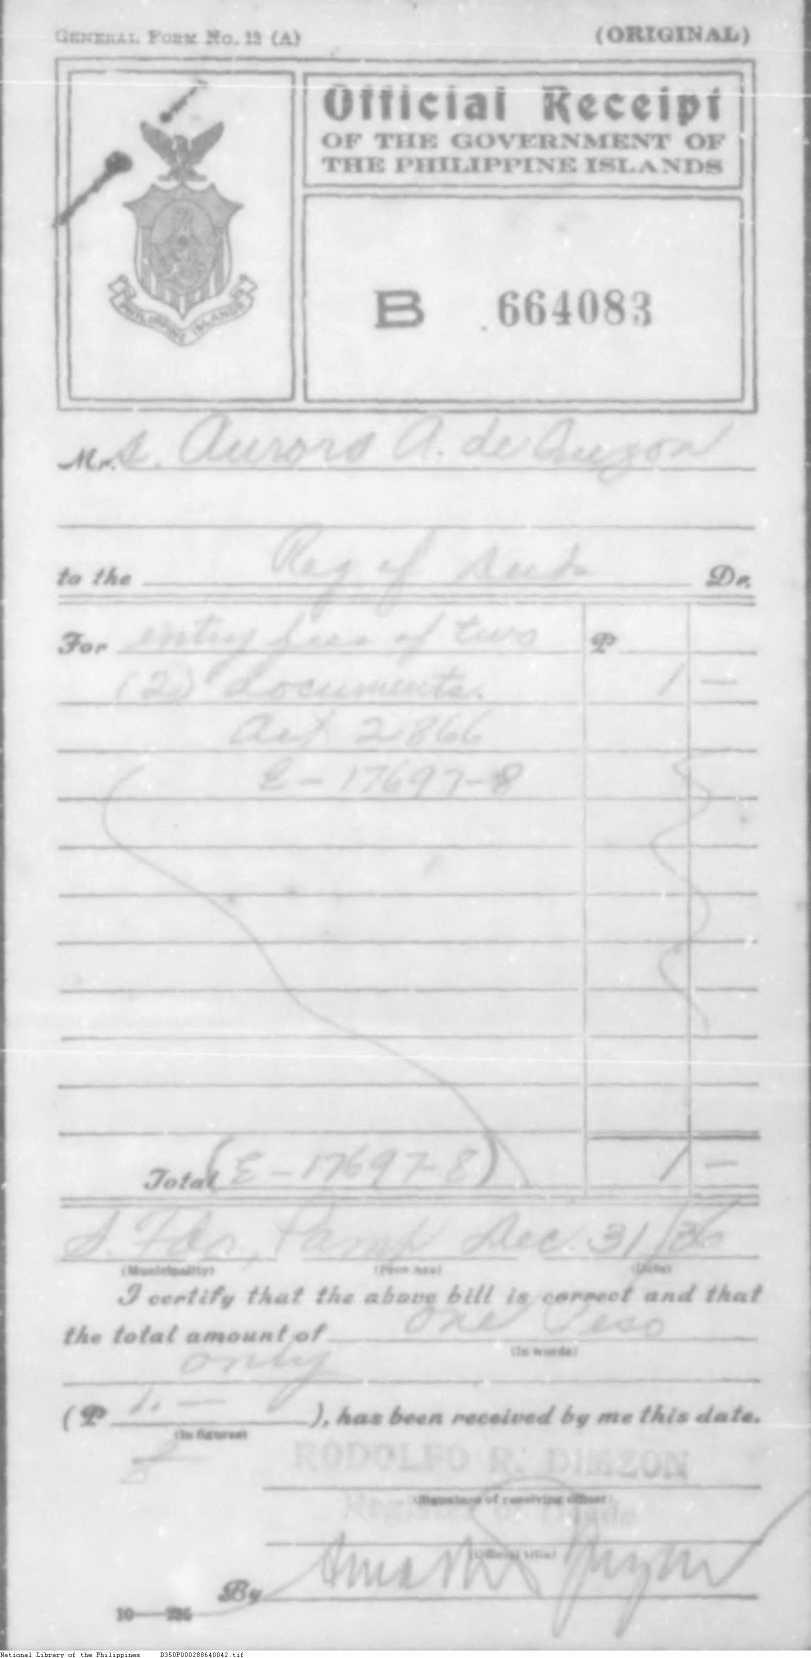 GENERAL FORM No. 12 (A)
(ORIGINAL)
Official Receipt
OF THE GOVERNMENT OF
THE PHILIPPINE ISLANDS
PHILIPPINE ISLANDS
B 664083
Mrs. Aurora A. de Guzon
to the Reg of Deeds Dr.
For entry fees of two ₱
(2) documents. 1 —
Act 2866
E-17697-8
Total (E-17697-8) 1 —
S. Fdo, Pamp Dec. 31/36
(Municipality) (Province) (Date)
I certify that the above bill is correct and that
the total amount of One Peso
(In words)
only
(₱ 1. — ), has been received by me this date.
(In figures)
RODOLFO R. DIMZON
(Signature of receiving officer)
Register of Deeds
(Official title)
By
10—
National Library of the Philippines D350P000288640042.tif